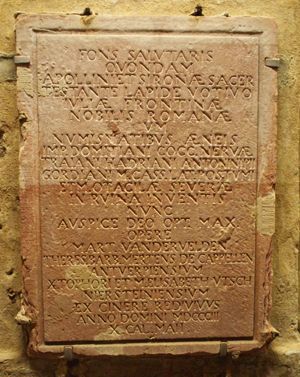 FONS SALVTARIS
QVONDAM
APOLLINI ET SIRONÆ SACER
TESTANTE LAPIDE VOTIVO
IVLIÆ FRONTINÆ
NOBILIS ROMANÆ
VM
NVMISMATIBVS ÆNEIS
IMP DOMITIANI COCC NERVÆ
TRAIANI HADRIANI ANTONINI PII
GORDIANI CASS LAT POSTVMI
ET M OTACILÆ SEVERÆ
IN RVINA INVENTIS
NVNC
AVSPICE DEO OPT MAX
OPERE
MART VANDERVELDEN
THERES BARB MERTENS DE CAPPELLEN
ANTVERPIENSIVM
XTOPHORI ET M ELISABETH VTSCH
NIERST
EX CINERE REDIVIVVS
ANNO DOMINI MDCCCIII
X CAL MAII